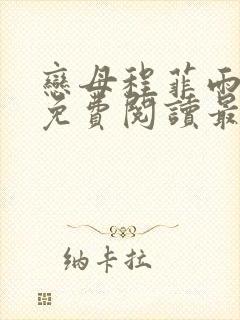 戀母程菲雨
免費閱讀最
纳卡拉